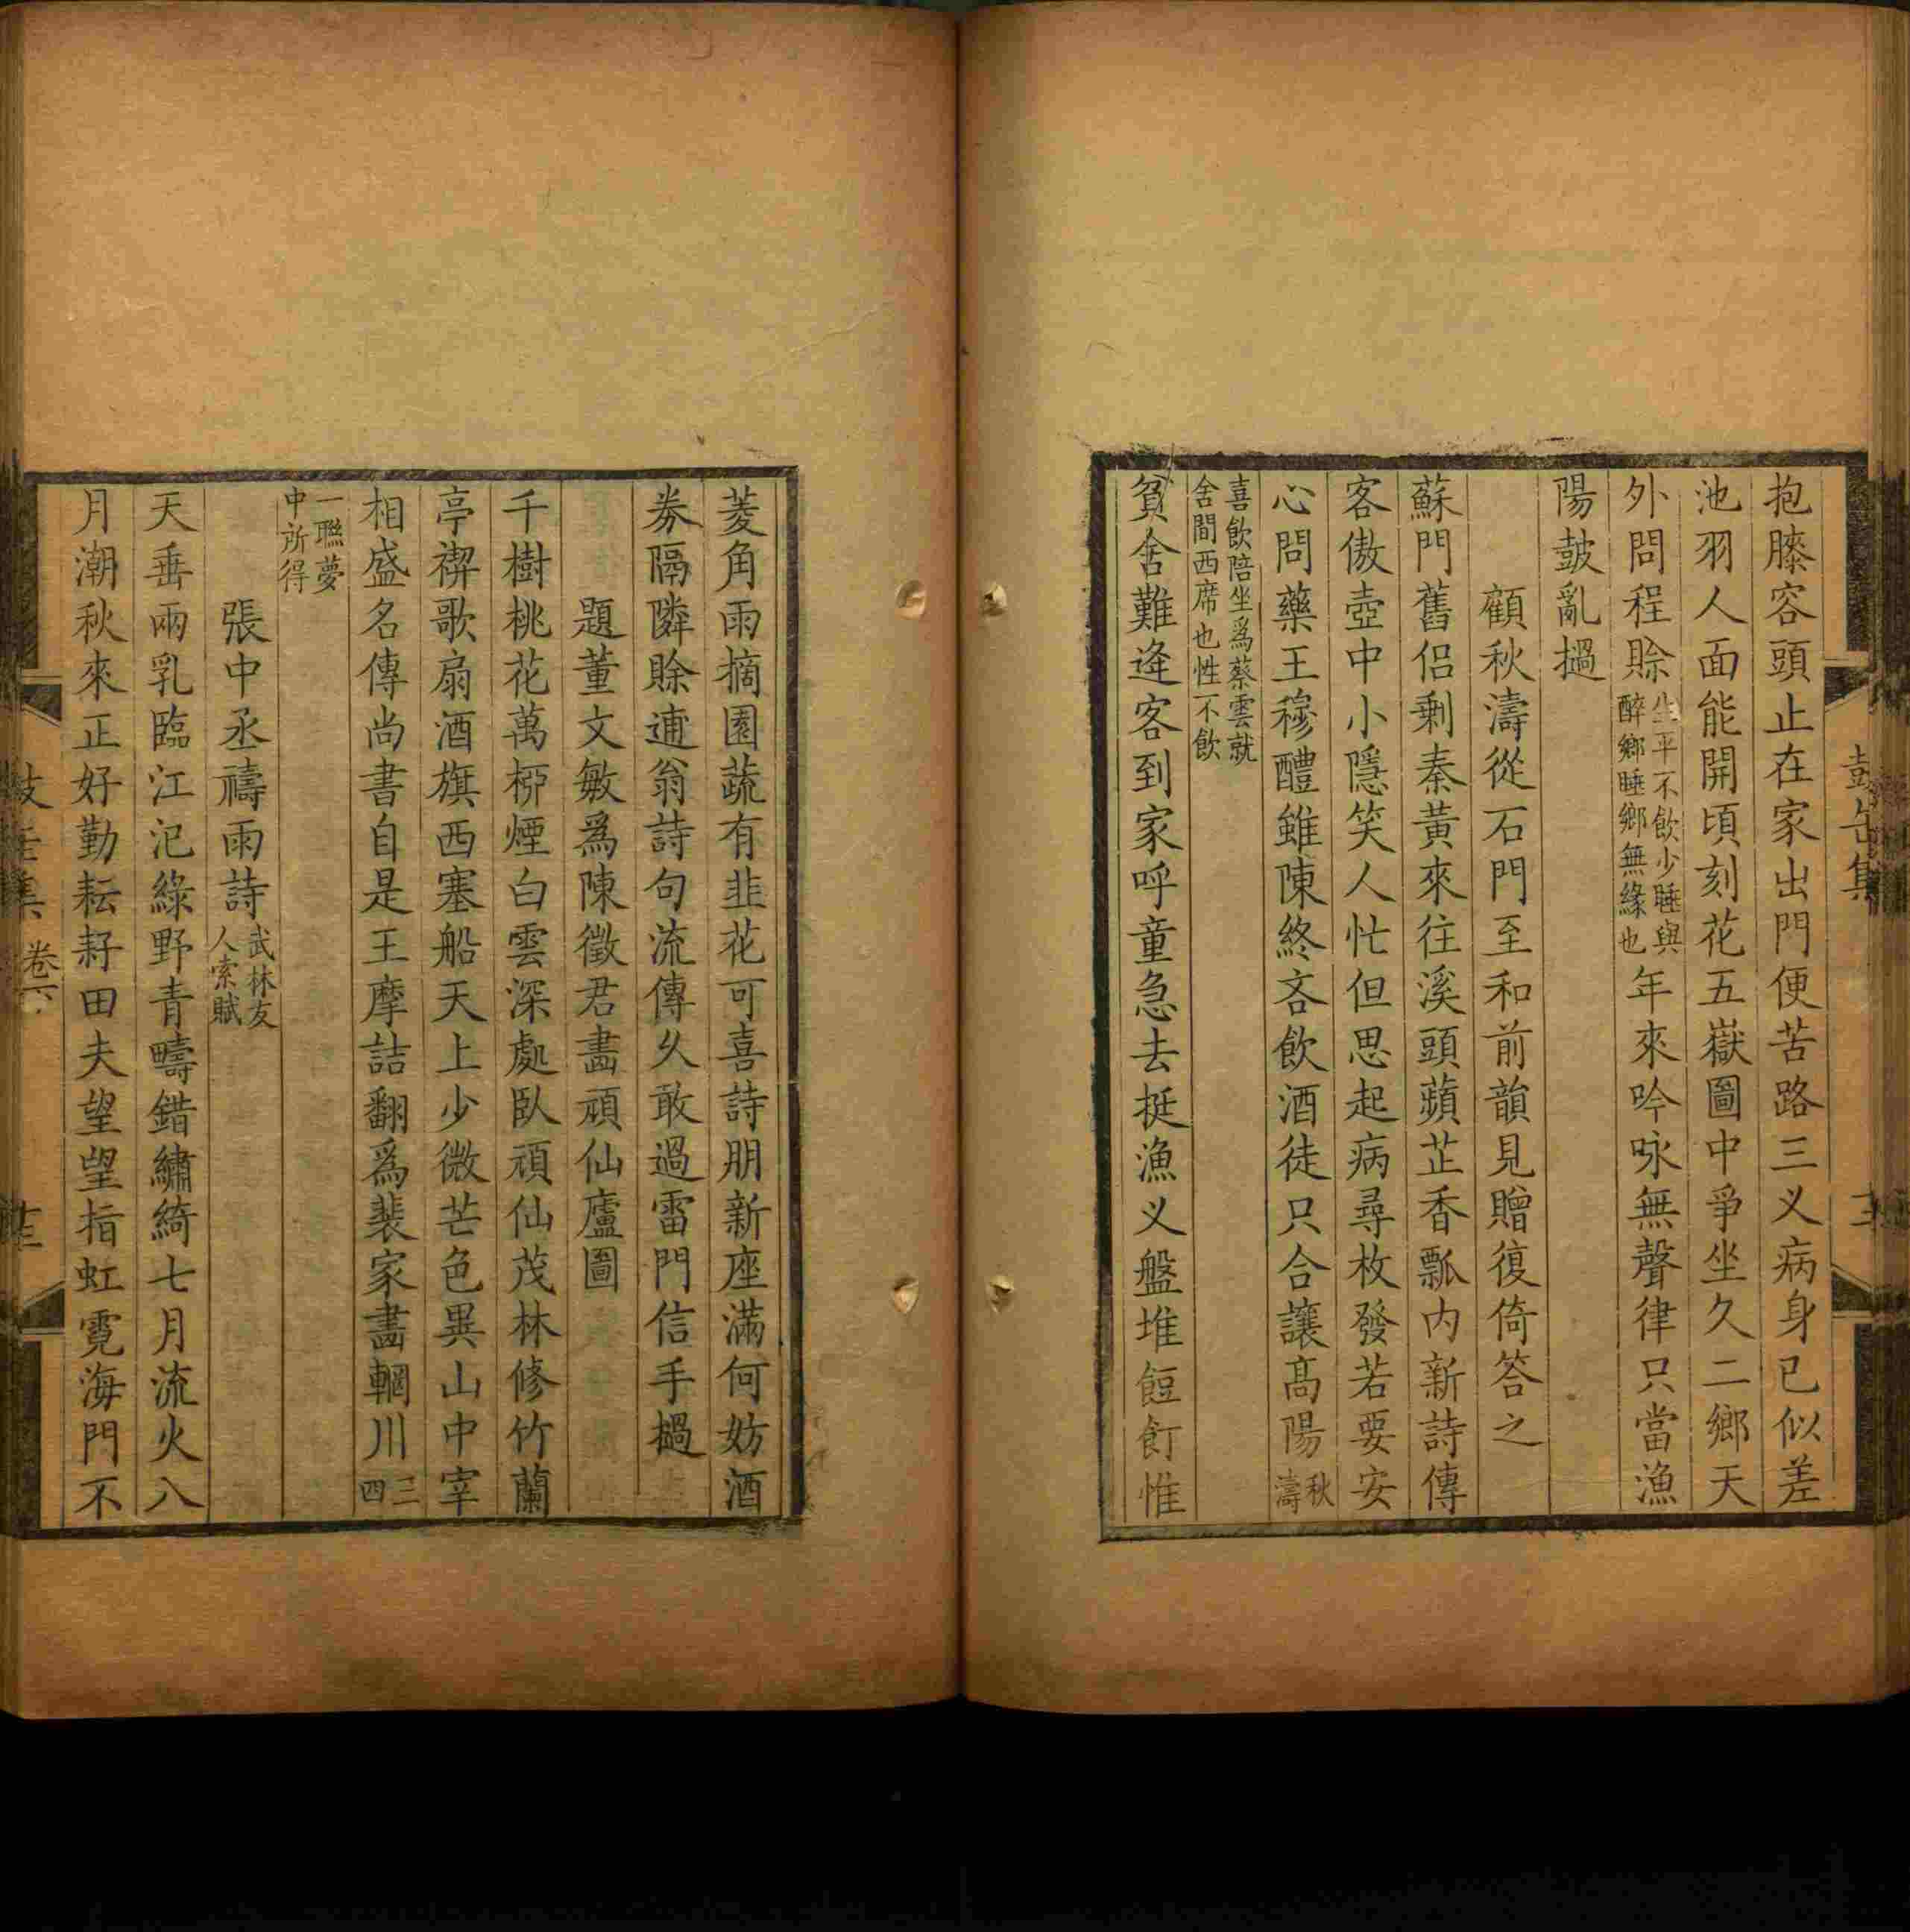 抱膝容頭止在家出門便苦路三义病身已似差
池羽人面能開頃刻花五嶽圖中爭坐久二鄉天
外問程賒生平不飲少睡與醉鄉睡鄉無緣也年來吟咏無聲律只當漁
陽鼓亂撾
顧秋濤從石門至和前韻見贈復倚答之
蘇門舊侶剩秦黃來往溪頭蘋芷香瓢內新詩傳
客傲壺中小隱笑人忙但思起病尋枚發若要安
心問藥王穆醴雖陳終吝飲酒徒只合讓高陽秋濤
喜飲陪坐爲蔡雲就舍間西席也性不飲
貧舍難逢客到家呼童急去挺漁义盤堆餖飣惟
菱角雨摘園蔬有韭花可喜詩朋新座滿何妨酒
券隔隣賒逋翁詩句流傳久敢過雷門信手撾
題董文敏爲陳徵君畵頑仙廬圖
千樹桃花萬栁煙白雲深處臥頑仙茂林修竹蘭
亭禊歌扇酒旗西塞船天上少微芒色異山中宰
相盛名傳尚書自是王摩詰翻爲裴家畵輞川三四
一聯夢中所得
張中丞禱雨詩武林友人索賦
天垂兩乳臨江汜綠野青疇錯繡綺七月流火八
月潮秋來正好勤耘耔田夫望望指虹霓海門不
卷六